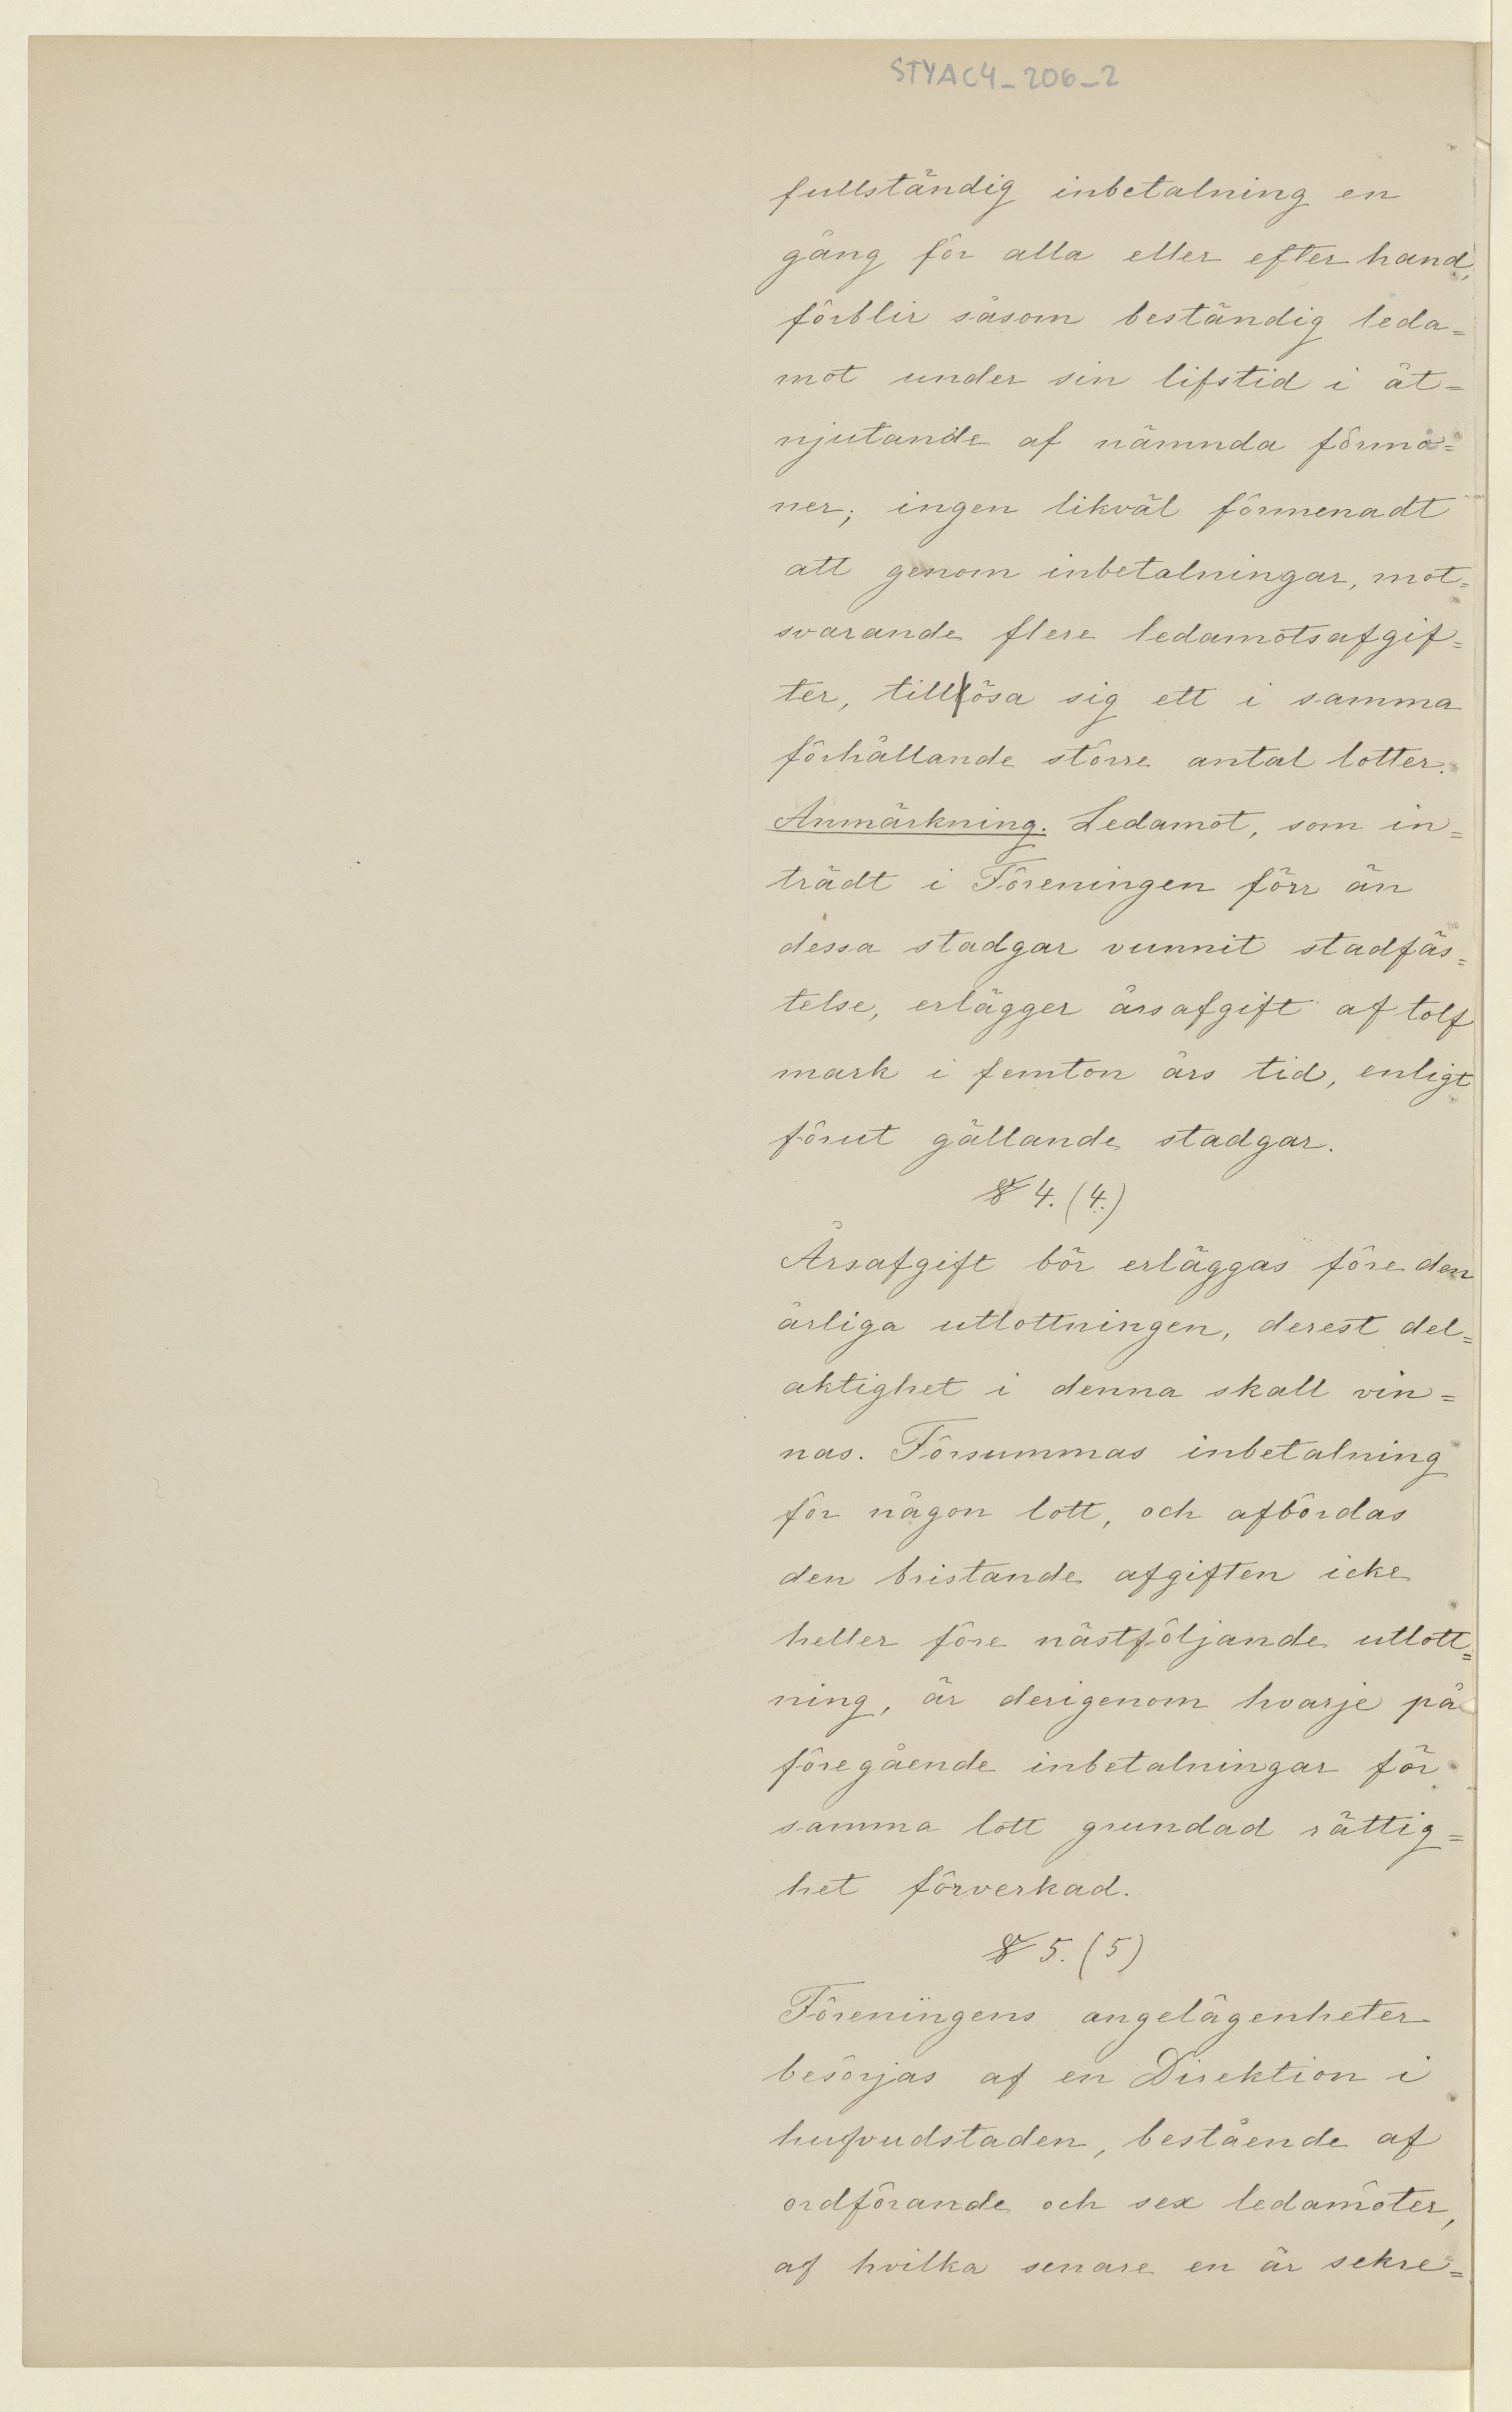 STYAC4_206_2
fullständig inbetalning en
gång för alla eller efter hand,
förblir såsom beständig leda=
mot under sin lifstid i åt=
njutande af nämnda förmå=
ner; ingen likväl förmenadt
att genom inbetalningar, mot=
svarande flere ledamotsafgif=
ter, tilllösa sig ett i samma
förhållande större antal lotter.
Anmärkning. Ledamot, som in=
trädt i Föreningen förr än
dessa stadgar vunnit stadfäs=
telse, erlägger årsafgift af tolf
mark i femton års tid, enligt
förut gällande stadgar.
§ 4. (4.)
Årsafgift bör erläggas före den
årliga utlottningen, derest del=
aktighet i denna skall vin=
nas. Försummas inbetalning
för någon lott, och afbördas
den bristande afgiften icke
heller före nästföljande utlott=
ning, är derigenom hvarje på
föregående inbetalningar för
samma lott grundad rättig=
het förverkad.
§ 5. (5)
Föreningens angelägenheter
besörjas af en Direktion i
hufvudstaden, bestående af
ordförande och sex ledamöter,
af hvilka senare en är sekre=